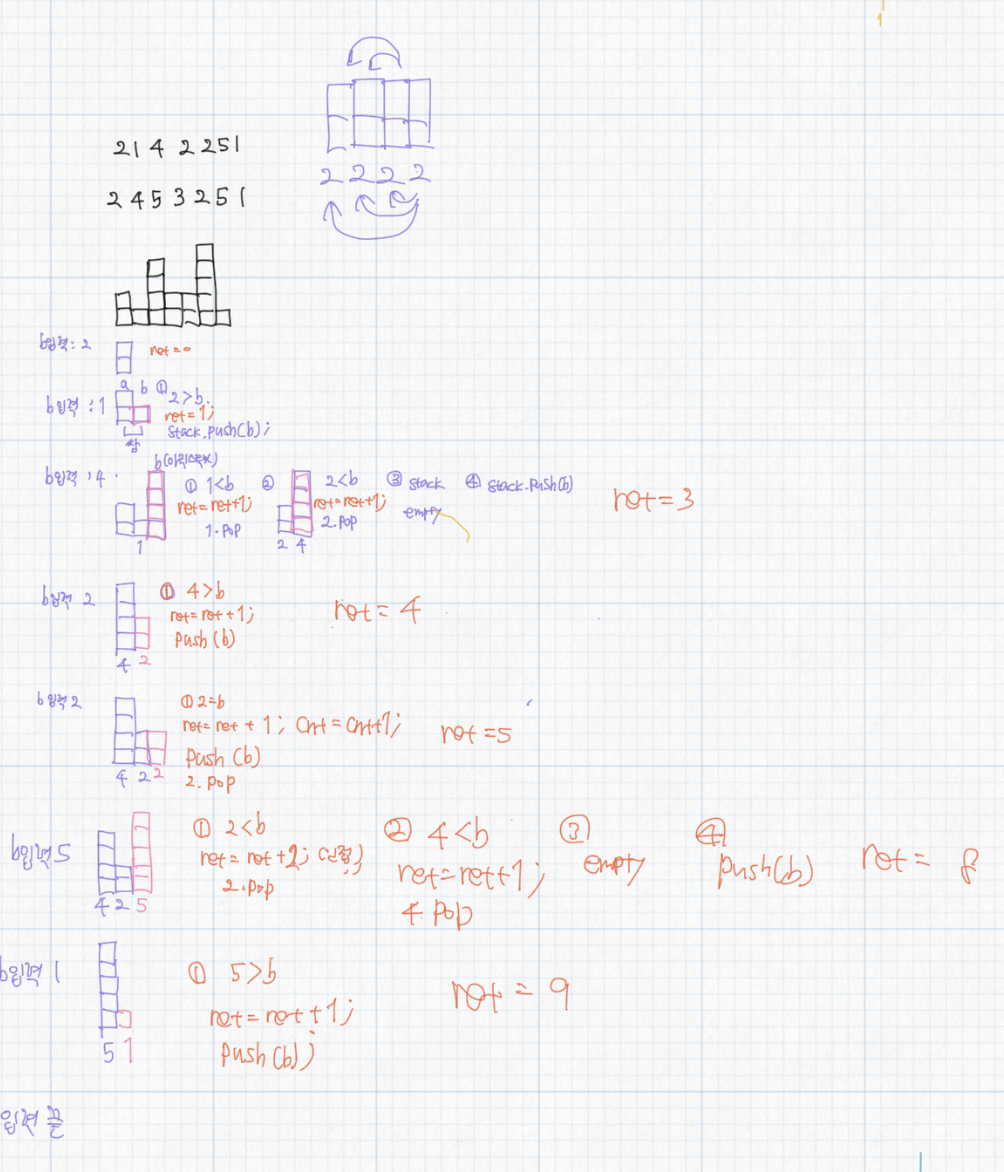 1
2 1 4 2 2 5 1
2 4 5 3 2 5 1
2 2 2 2
b입력: 2
ret=0
a b ① 2>b.
b입력 : 1
ret=1;
쌍
stack.push(b);
b입력 : 4
① 1<b
ret=ret+1;
1.pop
1
② 2<b
ret=ret+1;
2.pop
2 4
③ stack
empty
④ stack.push(b)
ret=3
b입력 2
① 4>b
ret=ret+1;
push(b)
4 2
ret=4
b입력 2
① 2=b
ret=ret+1; cnt=cnt+1;
push(b)
2.pop
4 2 2
ret=5
b입력 5
① 2<b
ret=ret+2;
2.pop
4 2 5
② 4<b
ret=ret+1;
4.pop
③
empty
④
push(b)
ret= 8
b입력 1
① 5>b
ret=ret+1;
push(b);
5 1
ret=9
입력 끝